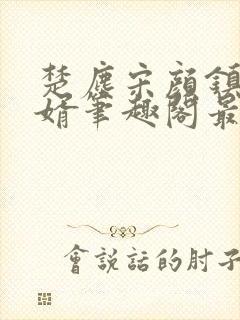 楚塵宋顏鎮
婿筆趣閣最
會說話的肘子